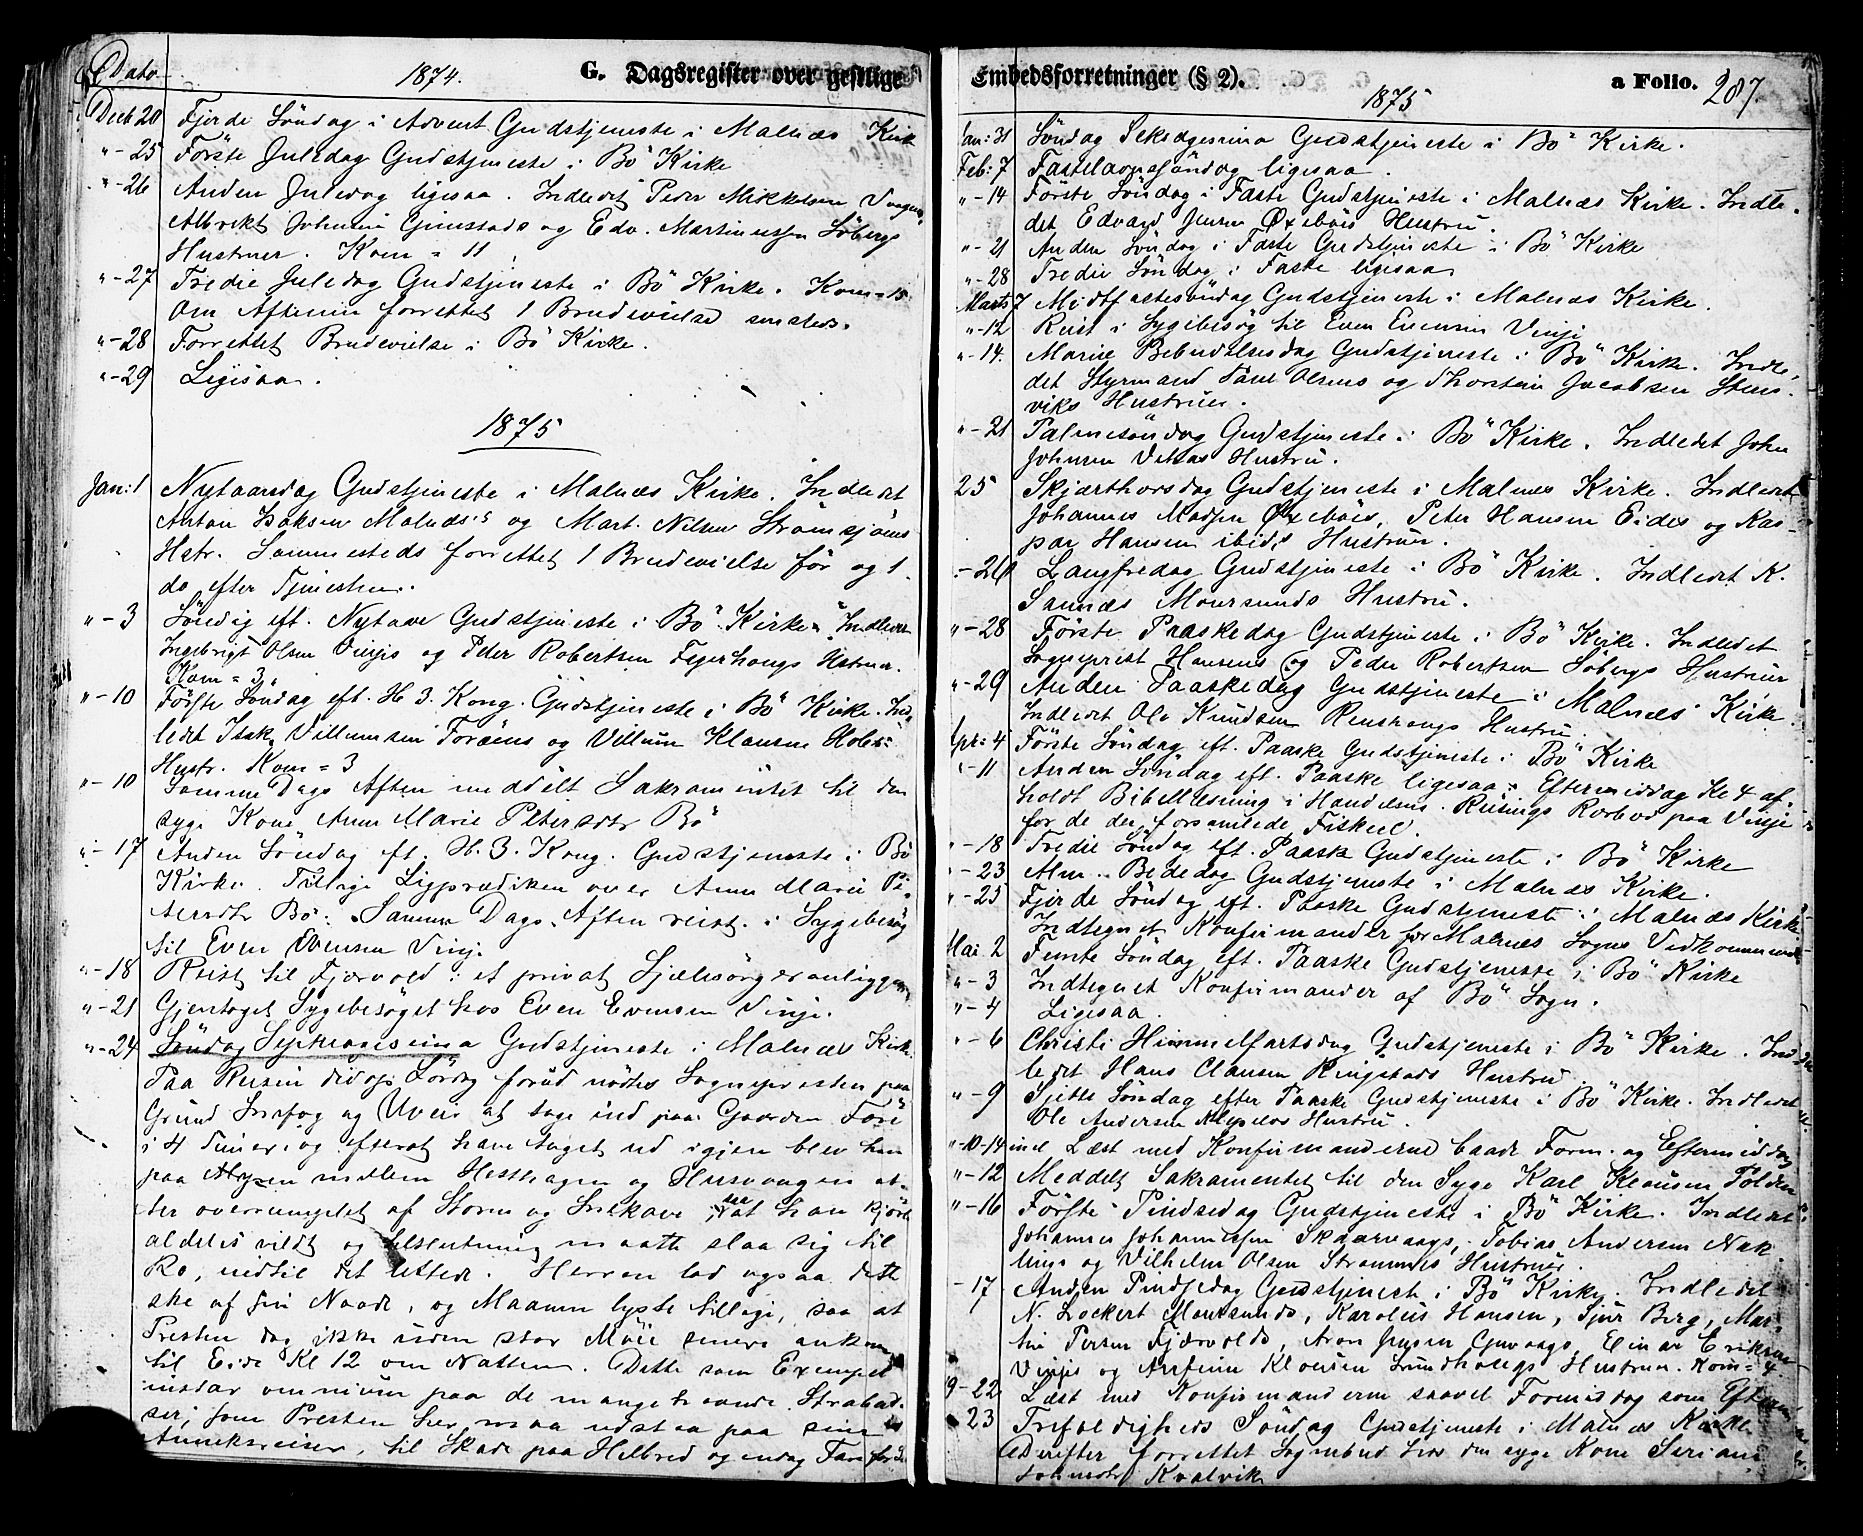 Dato
1874.
G. Dagsregister over gestlige
Decb 20 Fjerde Söndag i Advent Gudstjeneste i Malnæs Kirk
" - 25 Förste Juledag Gudstjeneste i Bö Kirke
" - 26 Anden Juledag ligesaa. Indledet Peder Mikkelsen
Albrikt Johnsen Gimstads og Edv. Martinussen Söbergs
Hustruer. Kom = 11
" - 27 Tredie Juledag Gudstjeneste i Bö Kirke. Kom = 15
Om Aftenen forrettet 1 Brudevielse smsteds.
" - 28 Forrettet Brudevielse i Bö Kirke.
" - 29 Ligesaa.
1875
Jan: 1 Nytaarsdag Gudstjeneste i Malnæs Kirke. Indledet
Anton Isaksen Malnæs's og Mart. Nilsen Strömsjöens
Hstr. Sammesteds forrettet 1 Brudevielse för og 1
do efter Tjenesten.
" - 3 Söndag eft. Nytaar Gudstjeneste i Bö Kirke. Indledet
Ingebrigt Olsen Vinjes og Peder Robertsen Hstruer.
Kom = 3
" - 10 Förste Söndag eft. H 3. Kong. Gudstjeneste i Bö Kirke. Ind
ledet Isak Villumsen Foröens og Villum Klausen Holes:
Hustr. Kom = 3
" - 10 Samme Dags Aften meddelt Sakramentet til den
syge Kone Anne Marie Petersdtr Bö
" - 17 Anden Söndag eft. H. 3. Kong. Gudstjeneste i Bö
Kirke. Tillige Ligprædiken over Anne Marie Pe-
tersdtr Bö. Samme Dags Aften reist i Sygebesög
til Even Evensen Vinje.
" - 18 Reist til Fjærvold i et privat Sjælesörgeranliggen
" - 21 Gjentaget Sygebesöget hos Even Evensen Vinje.
" - 24 Söndag Septuagesima Gudstjeneste i Malnæs Kirke
Paa Reisen did ops. Lördag forud nödtes Sognepresten paa
Grund Snefog og Uveir at tage ind paa Gaarden Före
i 4 Timer, og efterat have taget ud igjen blev han
paa Myren mellem Hesthagen og Husvaagen at-
ter overrumplet af Storm og Snekave, saa at han kjörte
aldeles vildt og tilslutning maatte slaa sig til
Ro, indtil det lettede. Herren lod ogsaa dette
ske af sin Naade, og Maanen lyste tillige, saa at
Presten dog ikke uden stor Möie senere ankom
til Eide Kl 12 om Natten. Dette som Exempel
instar omnium paa de mangehaande Strabad-
ser, som Presten her maa udstaa paa sine
Annexreiser, til Skade paa Helbred og endog Fare for
Embedsforretninger (§ 2).
1875
a Folio. 287.
Jan: 31 Söndag Seksagesima Gudstjeneste i Bö Kirke.
Feb: 7 Fastelavnssöndag ligesaa.
" - 14 Förste Söndag i Faste Gudstjeneste i Malnæs Kirke. Indle-
det Edvard Jensen Öxebös Hustru.
" - 21 Anden Söndag i Faste Gudstjeneste i Bö Kirke
" - 28 Tredie Söndag i Faste ligesaa
Marts 7 Midtfastesöndag Gudstjeneste i Malnæs Kirke.
" - 12 Reist i Sygebesög til Even Evensen Vinje
" - 14. Mariæ Bebudelsesdag Gudstjeneste i Bö Kirke. Indle-
det Styrmand Paul Olsens og Thorstein Jacobsen Steens-
viks Hustruer.
" - 21 Palmesöndag Gudstjeneste i Bö Kirke. Indledet John
Johnsen Hustru.
25 Skjærthorsdag Gudstjeneste i Malnæs Kirke. Indledet
Johannes Madsen Öxebös, Peter Hansen Eides og Kas-
par Hansen ibids Hustruer.
- 26 Langfredag Gudstjeneste i Bö Kirke. Indledet K.
Sannæs Moursunds Hustru.
" - 28 Förste Paaskedag Gudstjeneste i Bö Kirke. Indledet
Sogneprest Hansens og Peder Robertsen Söbergs Hustruer
" - 29 Anden Paaskedag Gudstjeneste i Malnæs Kirke.
Indledet Ole Knudsen Hustru.
Apr: 4 Förste Söndag eft. Paaske Gudstjeneste i Bö Kirke
" - 11 Anden Söndag eft. Paaske ligesaa. Eftermiddag Kl 4 af-
holdt Bibellæsning i Handelsm. Reinings Rorbod paa Vinje
for de der forsamlede Fiskere.
" - 18 Tredie Söndag eft. Paaske Gudstjeneste i Bö Kirke
- 23 Alm. Bededag Gudstjeneste i Malnæs Kirke.
" - 25 Fjerde Söndag eft. Paaske Gudstjeneste i Malnæs Kirke
Indtegnet Konfirmander for Malnæs Sogns Vedkommende
Mai 2 Femte Söndag eft. Paaske Gudstjeneste i Bö Kirke
" - 3 Indtegnet Konfirmander af Bö Sogn.
" - 4 Ligesaa.
" - 6 Christi Himmelfartsdag Gudstjeneste i Bö Kirke. Ind-
ledet Hans Clausen Ringstads Hustru
" - 9 Sjette Söndag efter Paaske Gudstjeneste i Bö Kirke. Indledet
Ole Andersen Hustru.
" - 10-14 incl Læst med Konfirmanderne baade Form. og Eftermiddag
" - 12 Meddelt Sakramentet til den Syge Karl Klausen
" - 16 Förste Pindsedag Gudstjeneste i Bö Kirke. Indledet
Johannes Johannessen Skaarvaags, Tobias Andersen Nyk-
lings og Vilhelm Olsen Straumnes Hustruer.
- 17 Anden Pindsedag Gudstjeneste i Bö Kirke. Indledet
N. Lockert Moursunds, Karolius Hansen, Sjur Berg, Mar-
tin Persen Fjærvolds, Aron Jensen Guvaags, Einar Eriksen
Vinjes og Arnfinn Klausen Hustruer. Kom = 4.
19 - 22 Læst med Konfirmanderne saavel Formiddag som Efterm
23 Trefoldigheds Söndag Gudstjeneste i Malnæs Kirke
Derefter forrettet Sognebud hos den syge Kone Seriane
Johnsdtr Kvalvik